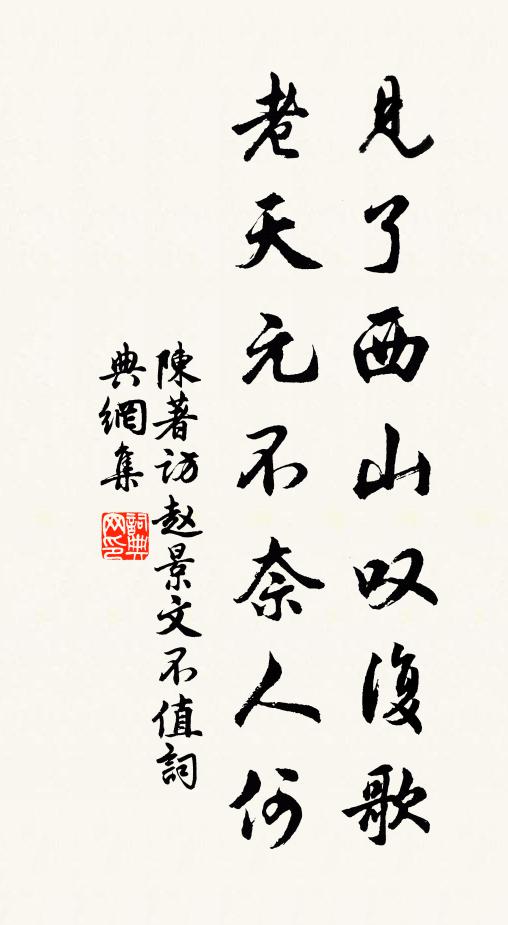 見了西山叹復歌
老天元不奈人何
陳著访赵景文不值詞
典網集
詞典
网印